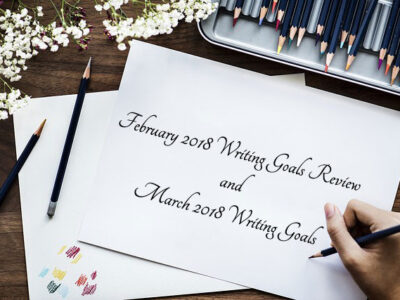 February 2018 Writing Goals Review
and
March 2018 Writing Goals